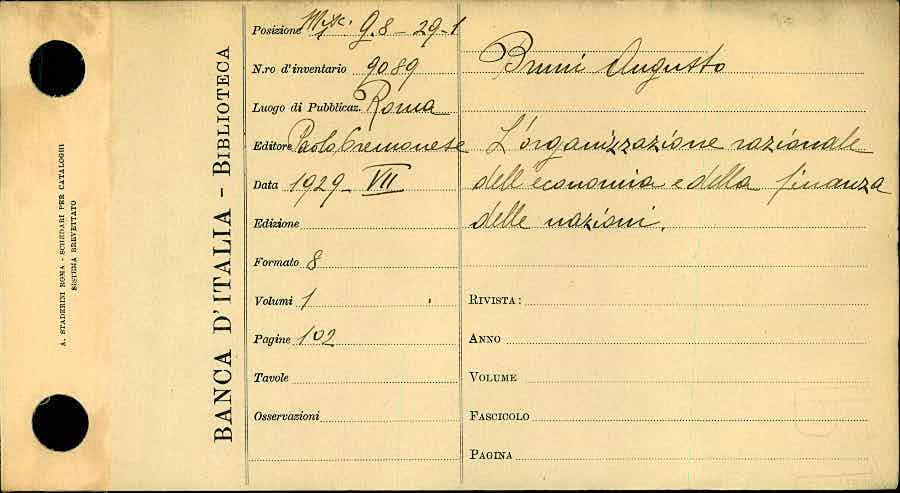 A. STADERINI ROMA - SCHEDARI PER CATALOGHI
SISTEMA BREVETTATO
BANCA D'ITALIA - BIBLIOTECA
Posizione Misc. G. 8 - 29-1
N.ro d'inventario 9089
Luogo di Pubblicaz. Roma
Editore Paolo Cremonese
Data 1929 - VII
Edizione
Formato 8
Volumi 1
Pagine 102
Tavole
Osservazioni
Bruni Augusto
L'organizzazione razionale
dell'economia e della finanza
delle nazioni.
RIVISTA:
ANNO
VOLUME
FASCICOLO
PAGINA